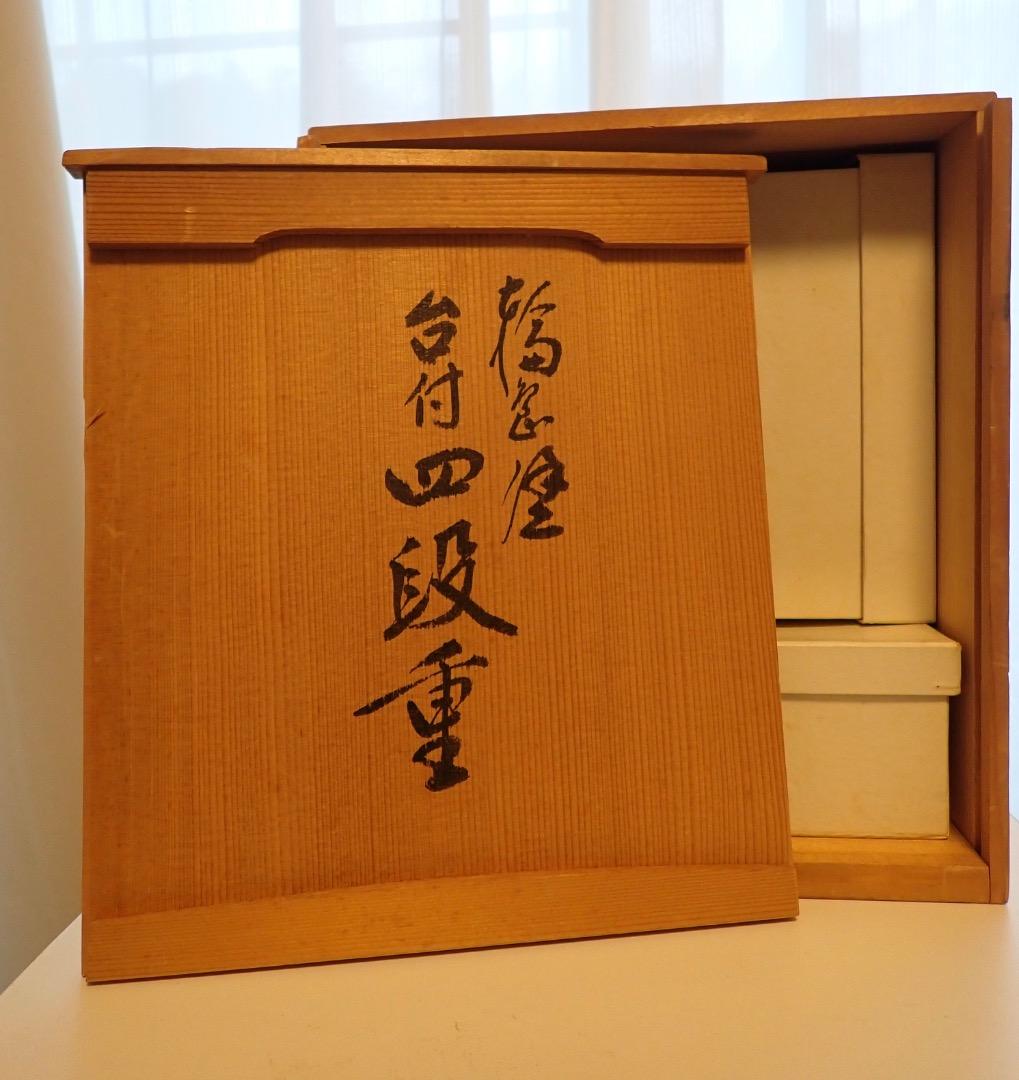 輪島塗
台付四段重